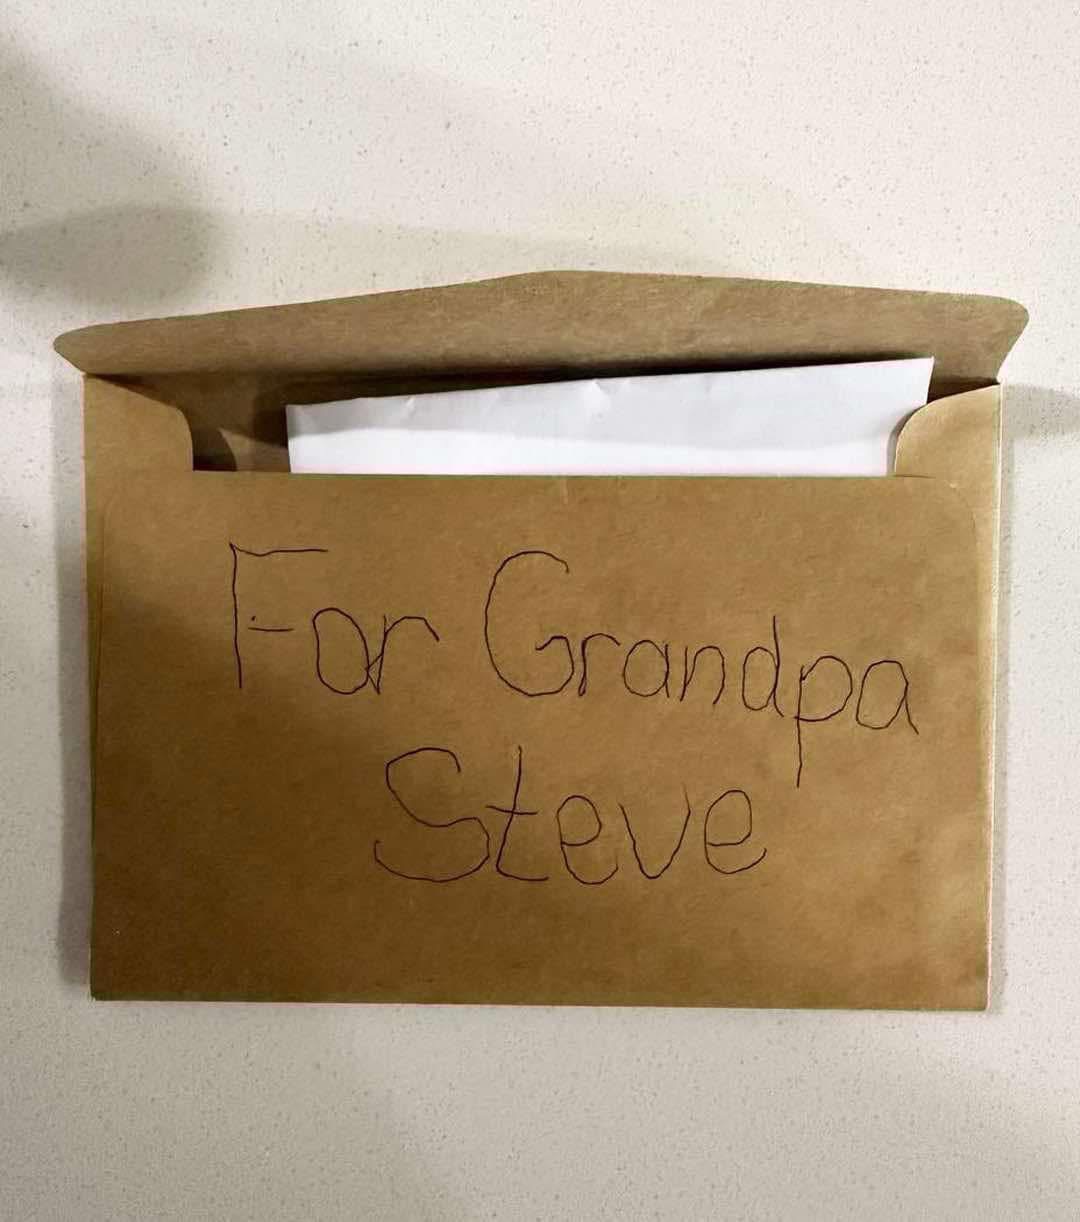 For Grandpa
Steve